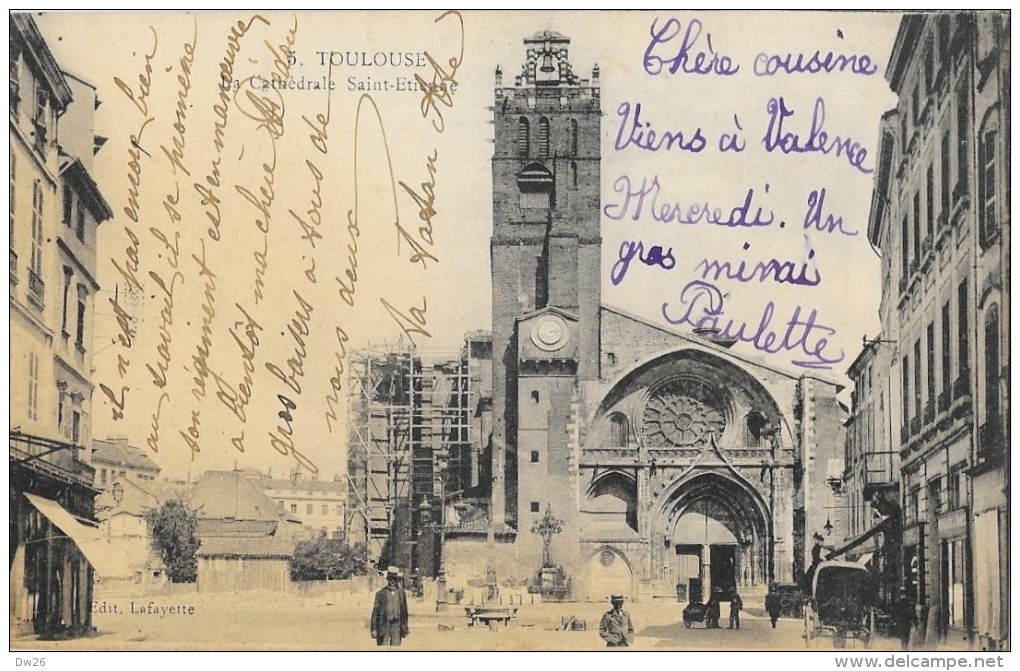 5. TOULOUSE
La Cathédrale Saint-Etienne
Chère cousine
Viens à Valence
Mercredi. Un
gros mimi
Paulette
il n'est pas encore bien
au travail il se promène
son régiment est en manœuvre
à bientôt ma chère
gros baisers à tous de
nous deux
Ta
Edit, Lafayette
Dw26
www.delcampe.net